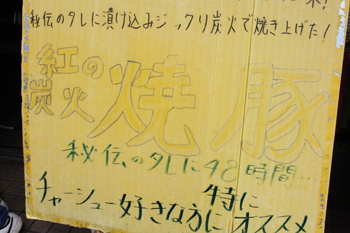 秘伝のタレに漬け込みジックリ炭火で焼き上げた!
紅の
炭火
焼豚
秘伝のタレに48時間…
特に
チャーシュー好きな方にオススメ